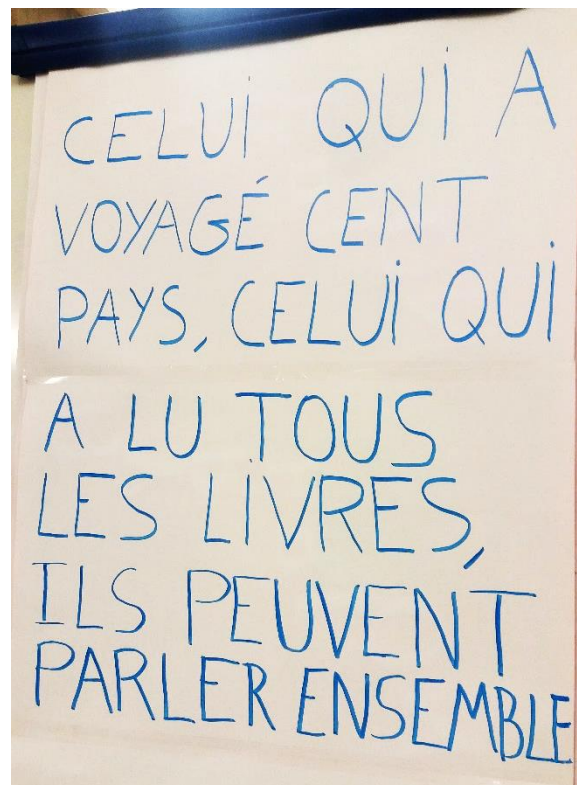 CELUI QUI A
VOYAGÉ CENT
PAYS, CELUI QUI
A LU TOUS
LES LIVRES,
ILS PEUVENT
PARLER ENSEMBLE